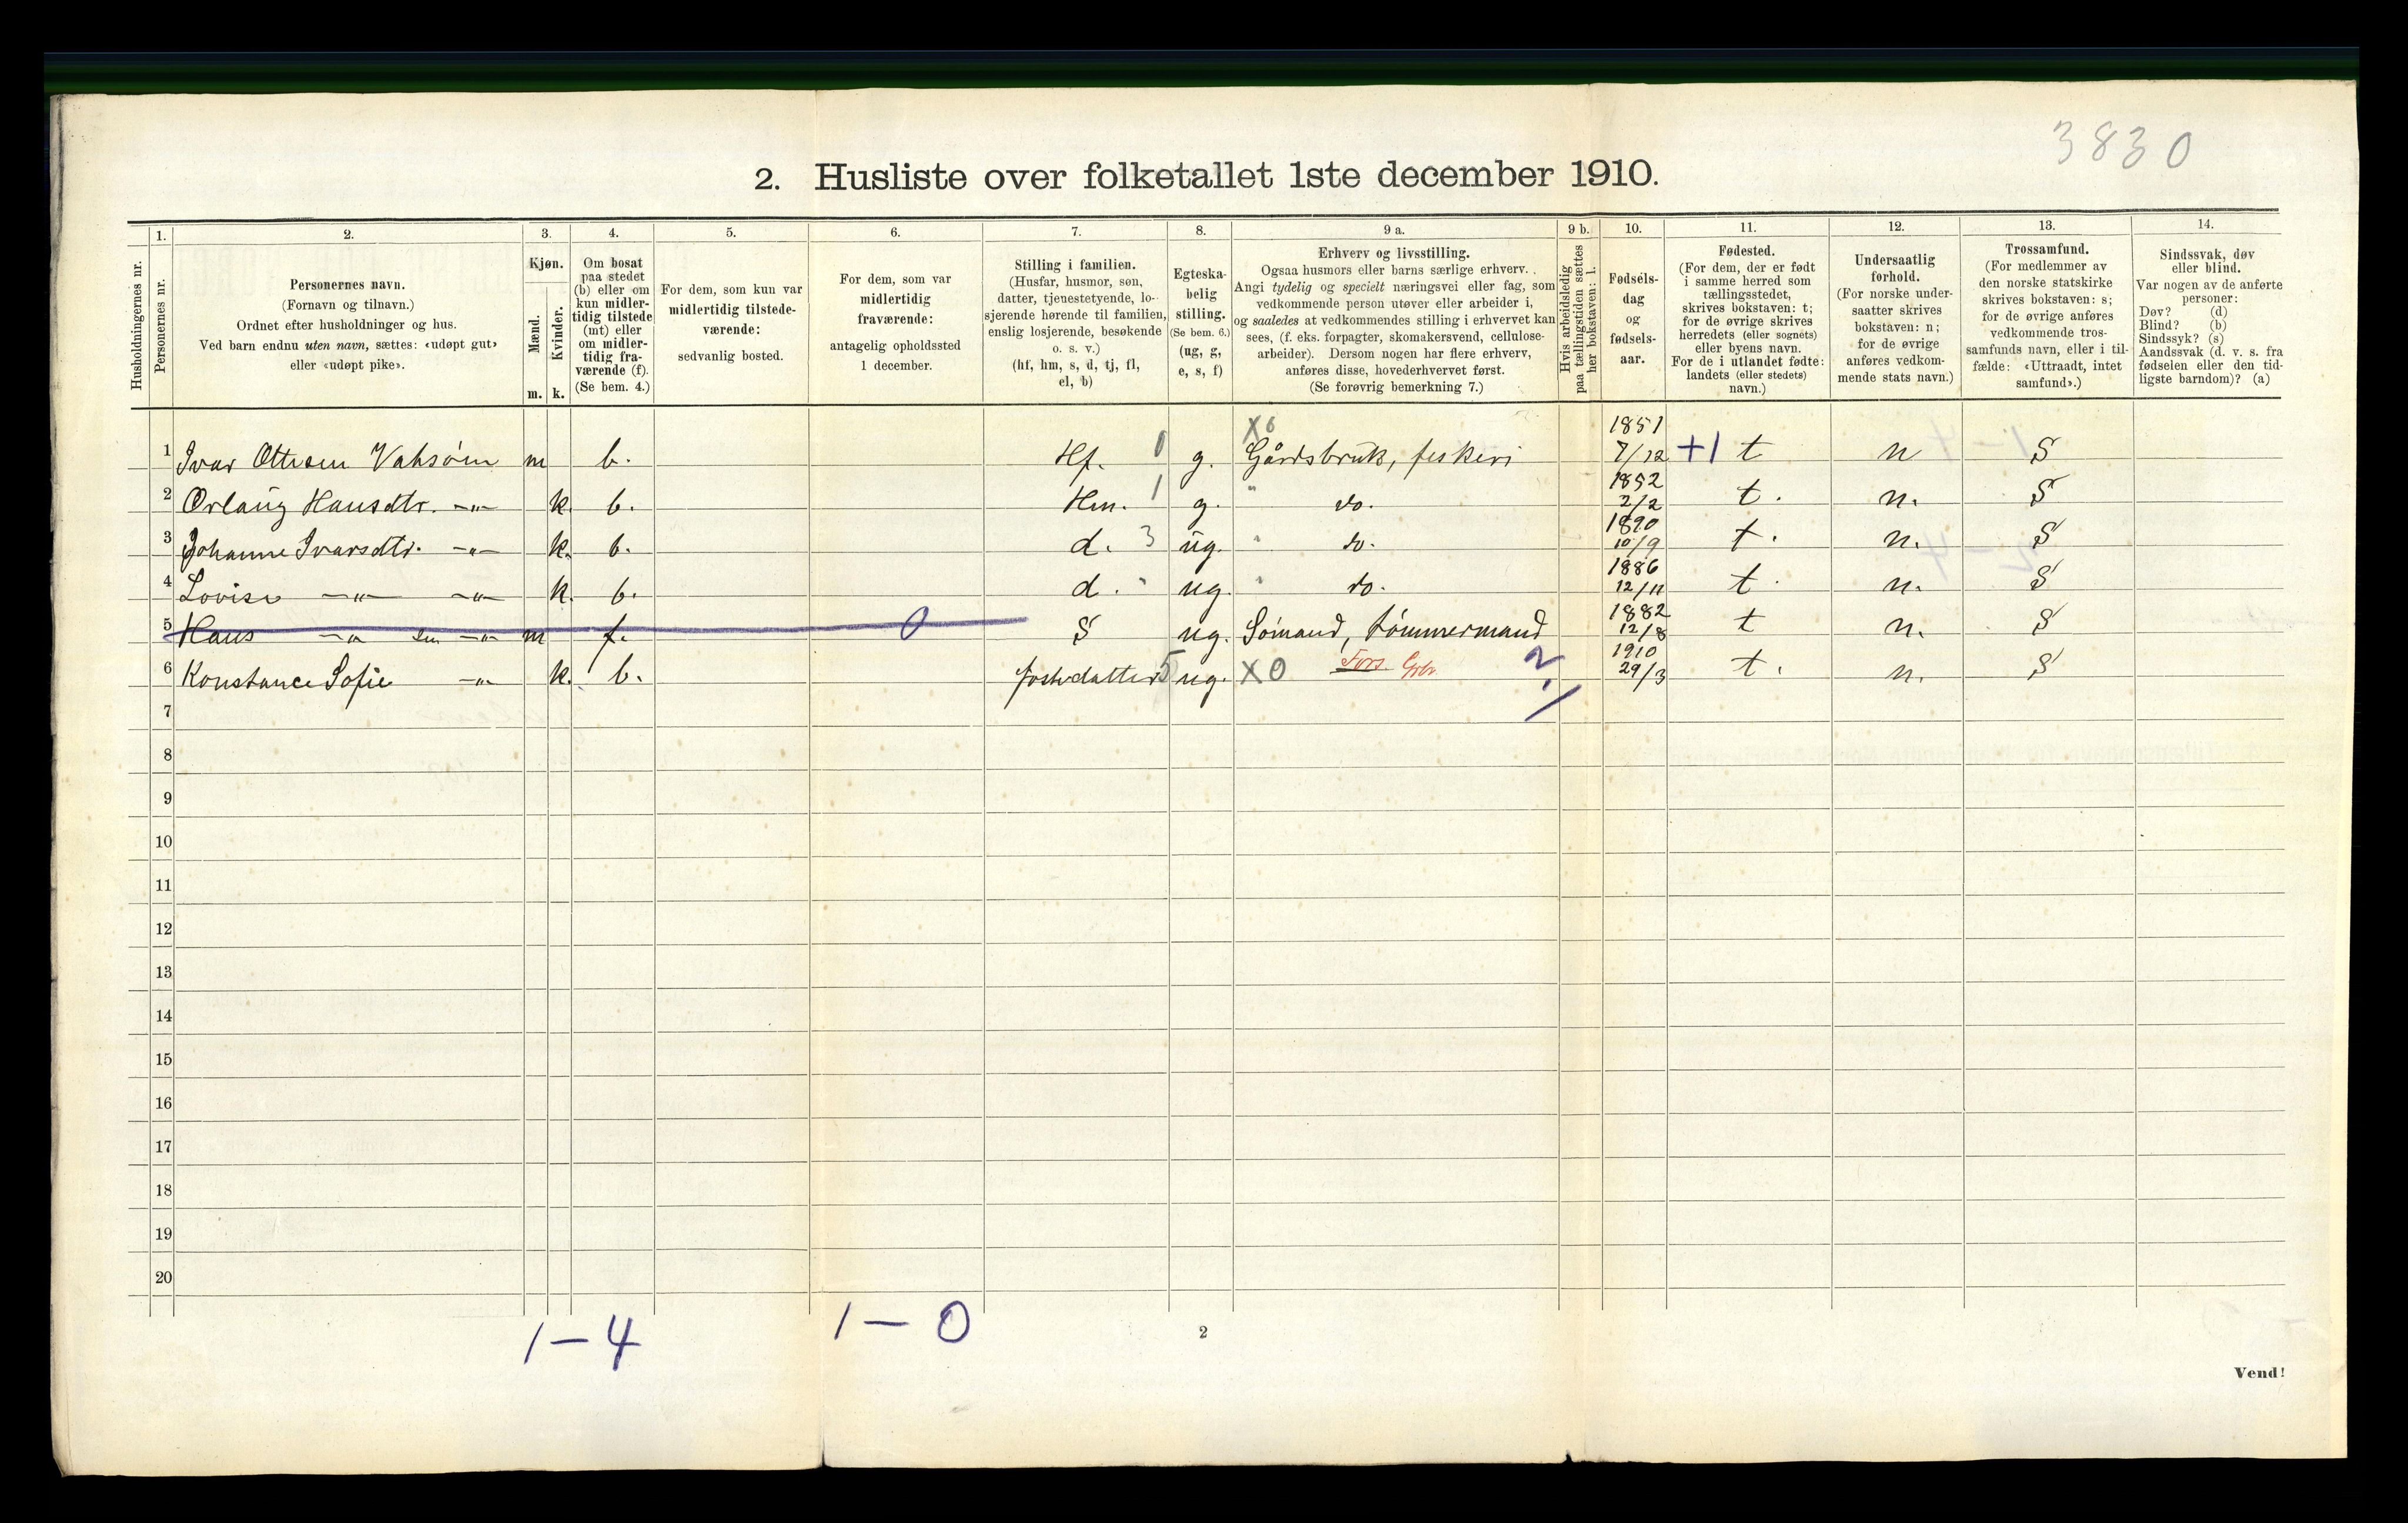 3830
2. Husliste over folketallet 1ste december 1910.
Husholdningernes nr.
1.
Personernes nr.
2.
Personernes navn.
(Fornavn og tilnavn.)
Ordnet efter husholdninger og hus.
Ved barn endnu uten navn, sættes: «udøpt gut»
eller «udøpt pike».
3.
Kjøn.
Mænd.
Kvinder.
m. k.
4.
Om bosat
paa stedet
(b) eller om
kun midler-
tidig tilstede
(mt) eller
om midler-
tidig fra-
værende (f).
(Se bem. 4.)
5.
For dem, som kun var
midlertidig tilstede-
værende:
sedvanlig bosted.
6.
For dem, som var
midlertidig
fraværende:
antagelig opholdssted
1 december.
7.
Stilling i familien.
(Husfar, husmor, søn,
datter, tjenestetyende, lo-
sjerende hørende til familien,
enslig losjerende, besøkende
o. s. v.)
(hf, hm, s, d, tj, fl,
el, b)
8.
Egteska-
belig
stilling.
(Se bem. 6.)
(ug, g,
e, s, f)
9 a.
Erhverv og livsstilling.
Ogsaa husmors eller barns særlige erhverv.
Angi tydelig og specielt næringsvei eller fag, som
vedkommende person utøver eller arbeider i,
og saaledes at vedkommendes stilling i erhvervet kan
sees, (f. eks. forpagter, skomakersvend, cellulose-
arbeider). Dersom nogen har flere erhverv,
anføres disse, hovederhvervet først.
(Se forøvrig bemerkning 7.)
9 b.
Hvis arbeidsledig
paa tællingstiden sættes
her bokstaven: l.
10.
Fødsels-
dag
og
fødsels-
aar.
11.
Fødested.
(For dem, der er født
i samme herred som
tællingsstedet,
skrives bokstaven: t;
for de øvrige skrives
herredets (eller sognets)
eller byens navn.
For de i utlandet fødte:
landets (eller stedets)
navn.)
12.
Undersaatlig
forhold.
(For norske under-
saatter skrives
bokstaven: n;
for de øvrige
anføres vedkom-
mende stats navn.)
13.
Trossamfund.
(For medlemmer av
den norske statskirke
skrives bokstaven: s;
for de øvrige anføres
vedkommende tros-
samfunds navn, eller i til-
fælde: «Uttraadt, intet
samfund».)
14.
Sindssvak, døv
eller blind.
Var nogen av de anførte
personer:
Døv? (d)
Blind? (b)
Sindssyk? (s)
Aandssvak (d. v. s. fra
fødselen eller den tid-
ligste barndom)? (a)
X0 1851
1 Ivar Ottesen m b. Hf. 0 g. Gårdsbruk, feskeri 7/12 +1 t n S
1852
2 Orlaug Hansdtr. -"- k. b. Hm. 1 g. " do. 2/2 t. n. S
1890
3 Johanne Ivarsdtr. -"- k. b. d. 3 ug. " do. 10/9 t. n. S
1886
4 Lovise -"- -"- k. b. d. " ug. " do. 12/11 t n. S
1882
5 Hans -"- sn -"- m f. 0 S ug. Sømand, tømmermand 12/8 t n. S
1910
6 Konstance Sofie -"- k. b. fosterdatter 5 ug. X0 Fors. Grbr 2. 29/3 t. n. S
7
8
9
10
11
12
13
14
15
16
17
18
19
20
1 - 4 1 - 0
2
Vend!